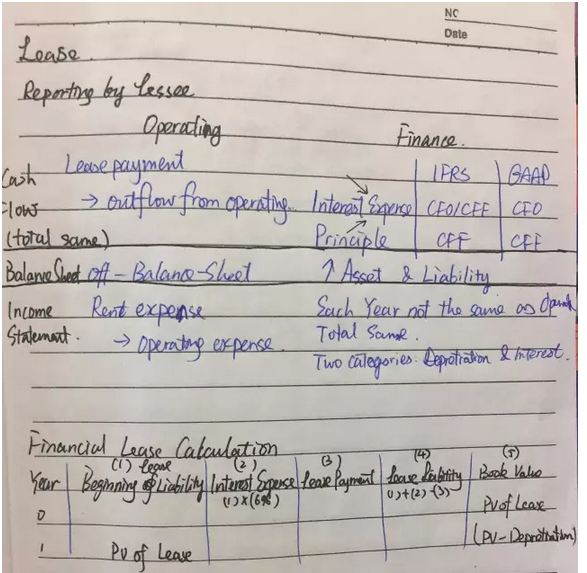 NO
Date
Lease.
Reporting by Lessee
Operating Finance.
Lease payment IFRS GAAP
Cash
Flows → outflow from operating. Interest Expense CFO/CFF CFO
(total same) Principle CFF CFF
Balance Sheet off-Balance-Sheet ↑ Asset & Liability
Income Rent expense Each Year not the same as Operat
Statement. → Operating expense Total Same.
Two Categories: Depretiation & Interest.
Financial Lease Calculation
(1) lease (2) (3) (4) (5)
Year Beginning of Liability Interest Expense Lease Payment Lease Liability Book Value
(1)×(6%) (1)+(2)-(3)
0 PV of Lease
1 PV of Lease (PV-Depretiation)